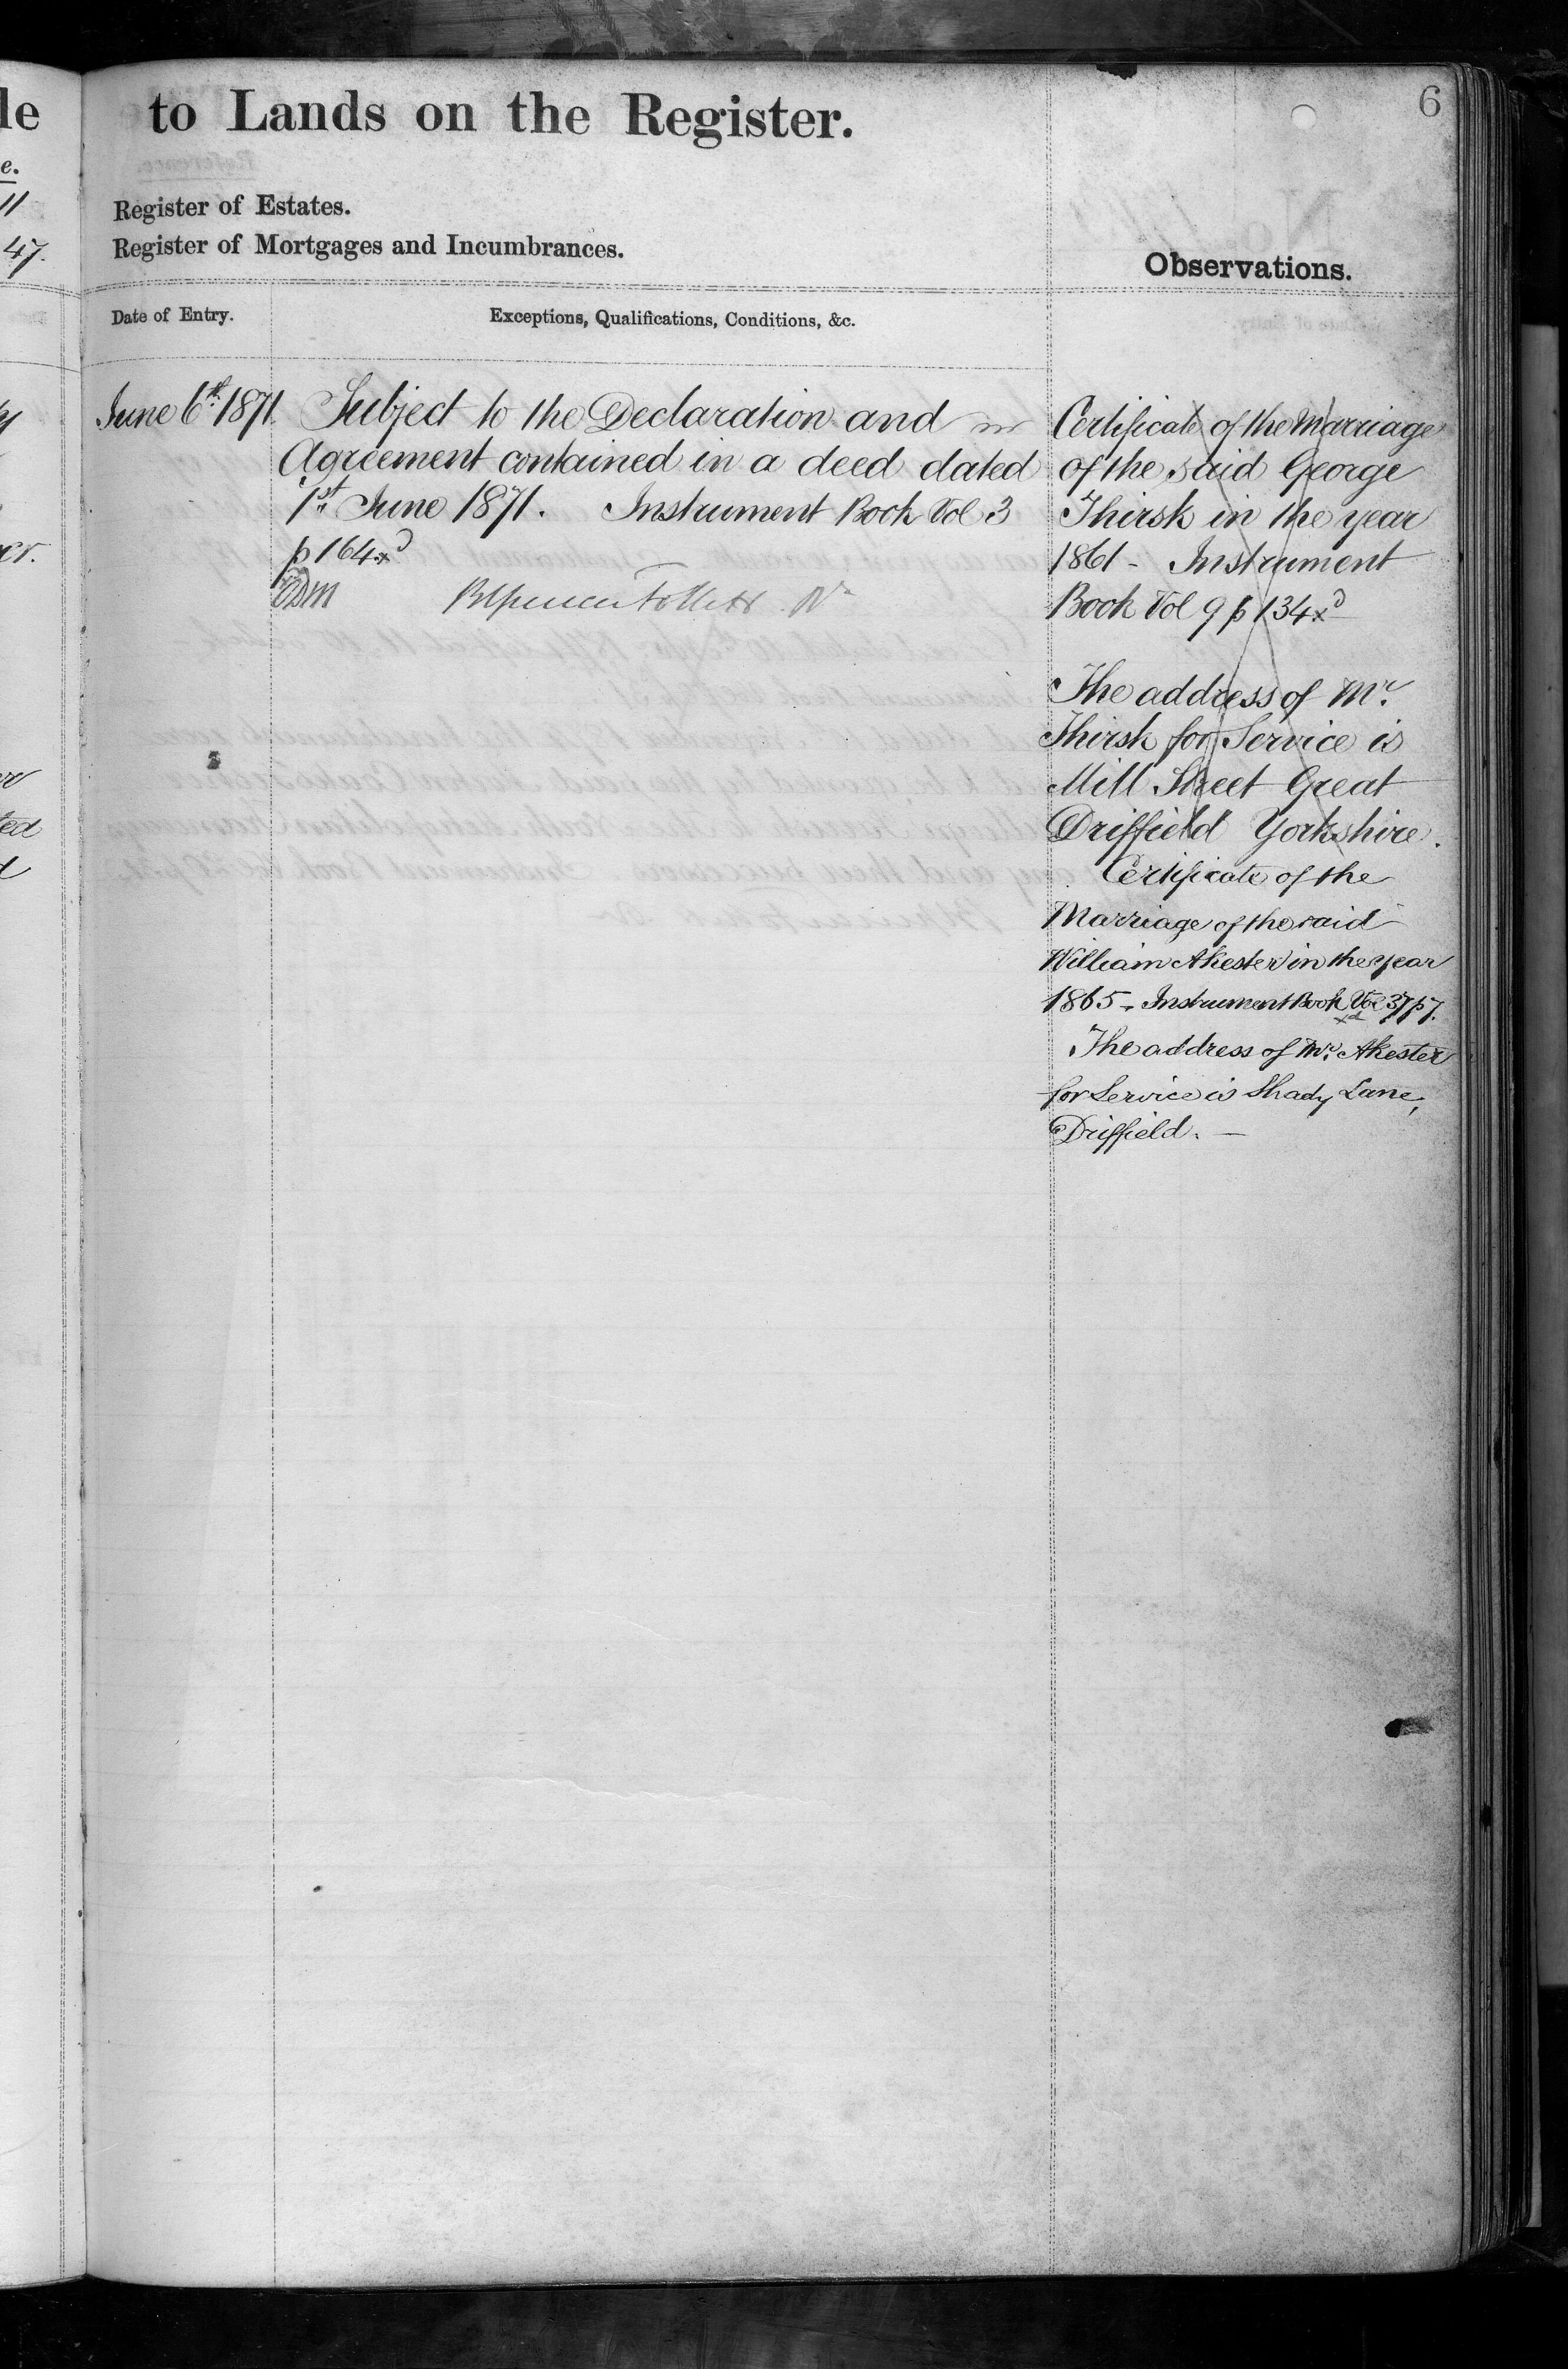 to Lands on the Register.
6
Register of Estates.
Register of Mortgages and Incumbrances.
Observations.
Date of Entry.
Exceptions, Qualifications, Conditions, &c.
June 6th 1871.
Subject to the Declaration and
Agreement contained in a deed dated
1st June 1871. Instrument Book Vol 3
p 164 xd
BSpencer Follett Rr
Certificate of the Marriage
of the said George
Thirsk in the year
1861 - Instrument
Book Vol 9 p 134 xd
The address of Mr.
Thirsk for Service is
Mill Street Great
Driffield Yorkshire.
Certificate of the
Marriage of the said
William Akester in the year
1865 - Instrument Book Vol 37 p 7.
xd
The address of Mr. Akester
for Service is Shady Lane,
Driffield. —
le
e.
11
47.
er.
ted